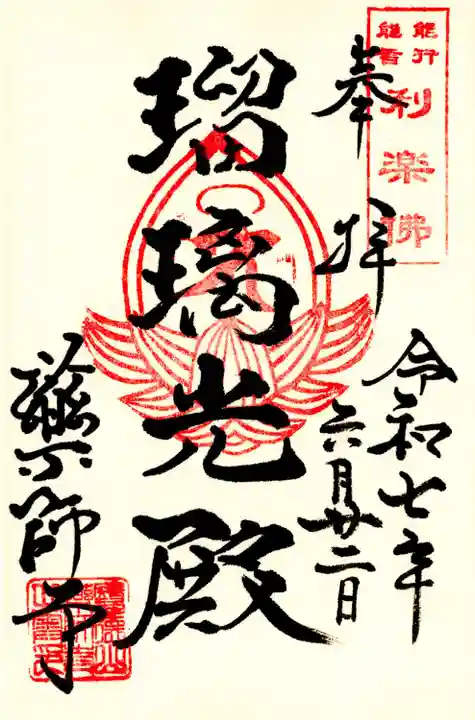 能行
能言
利楽佛
奉拝
令和七年
六月廿二日
瑠璃光殿
薬師寺